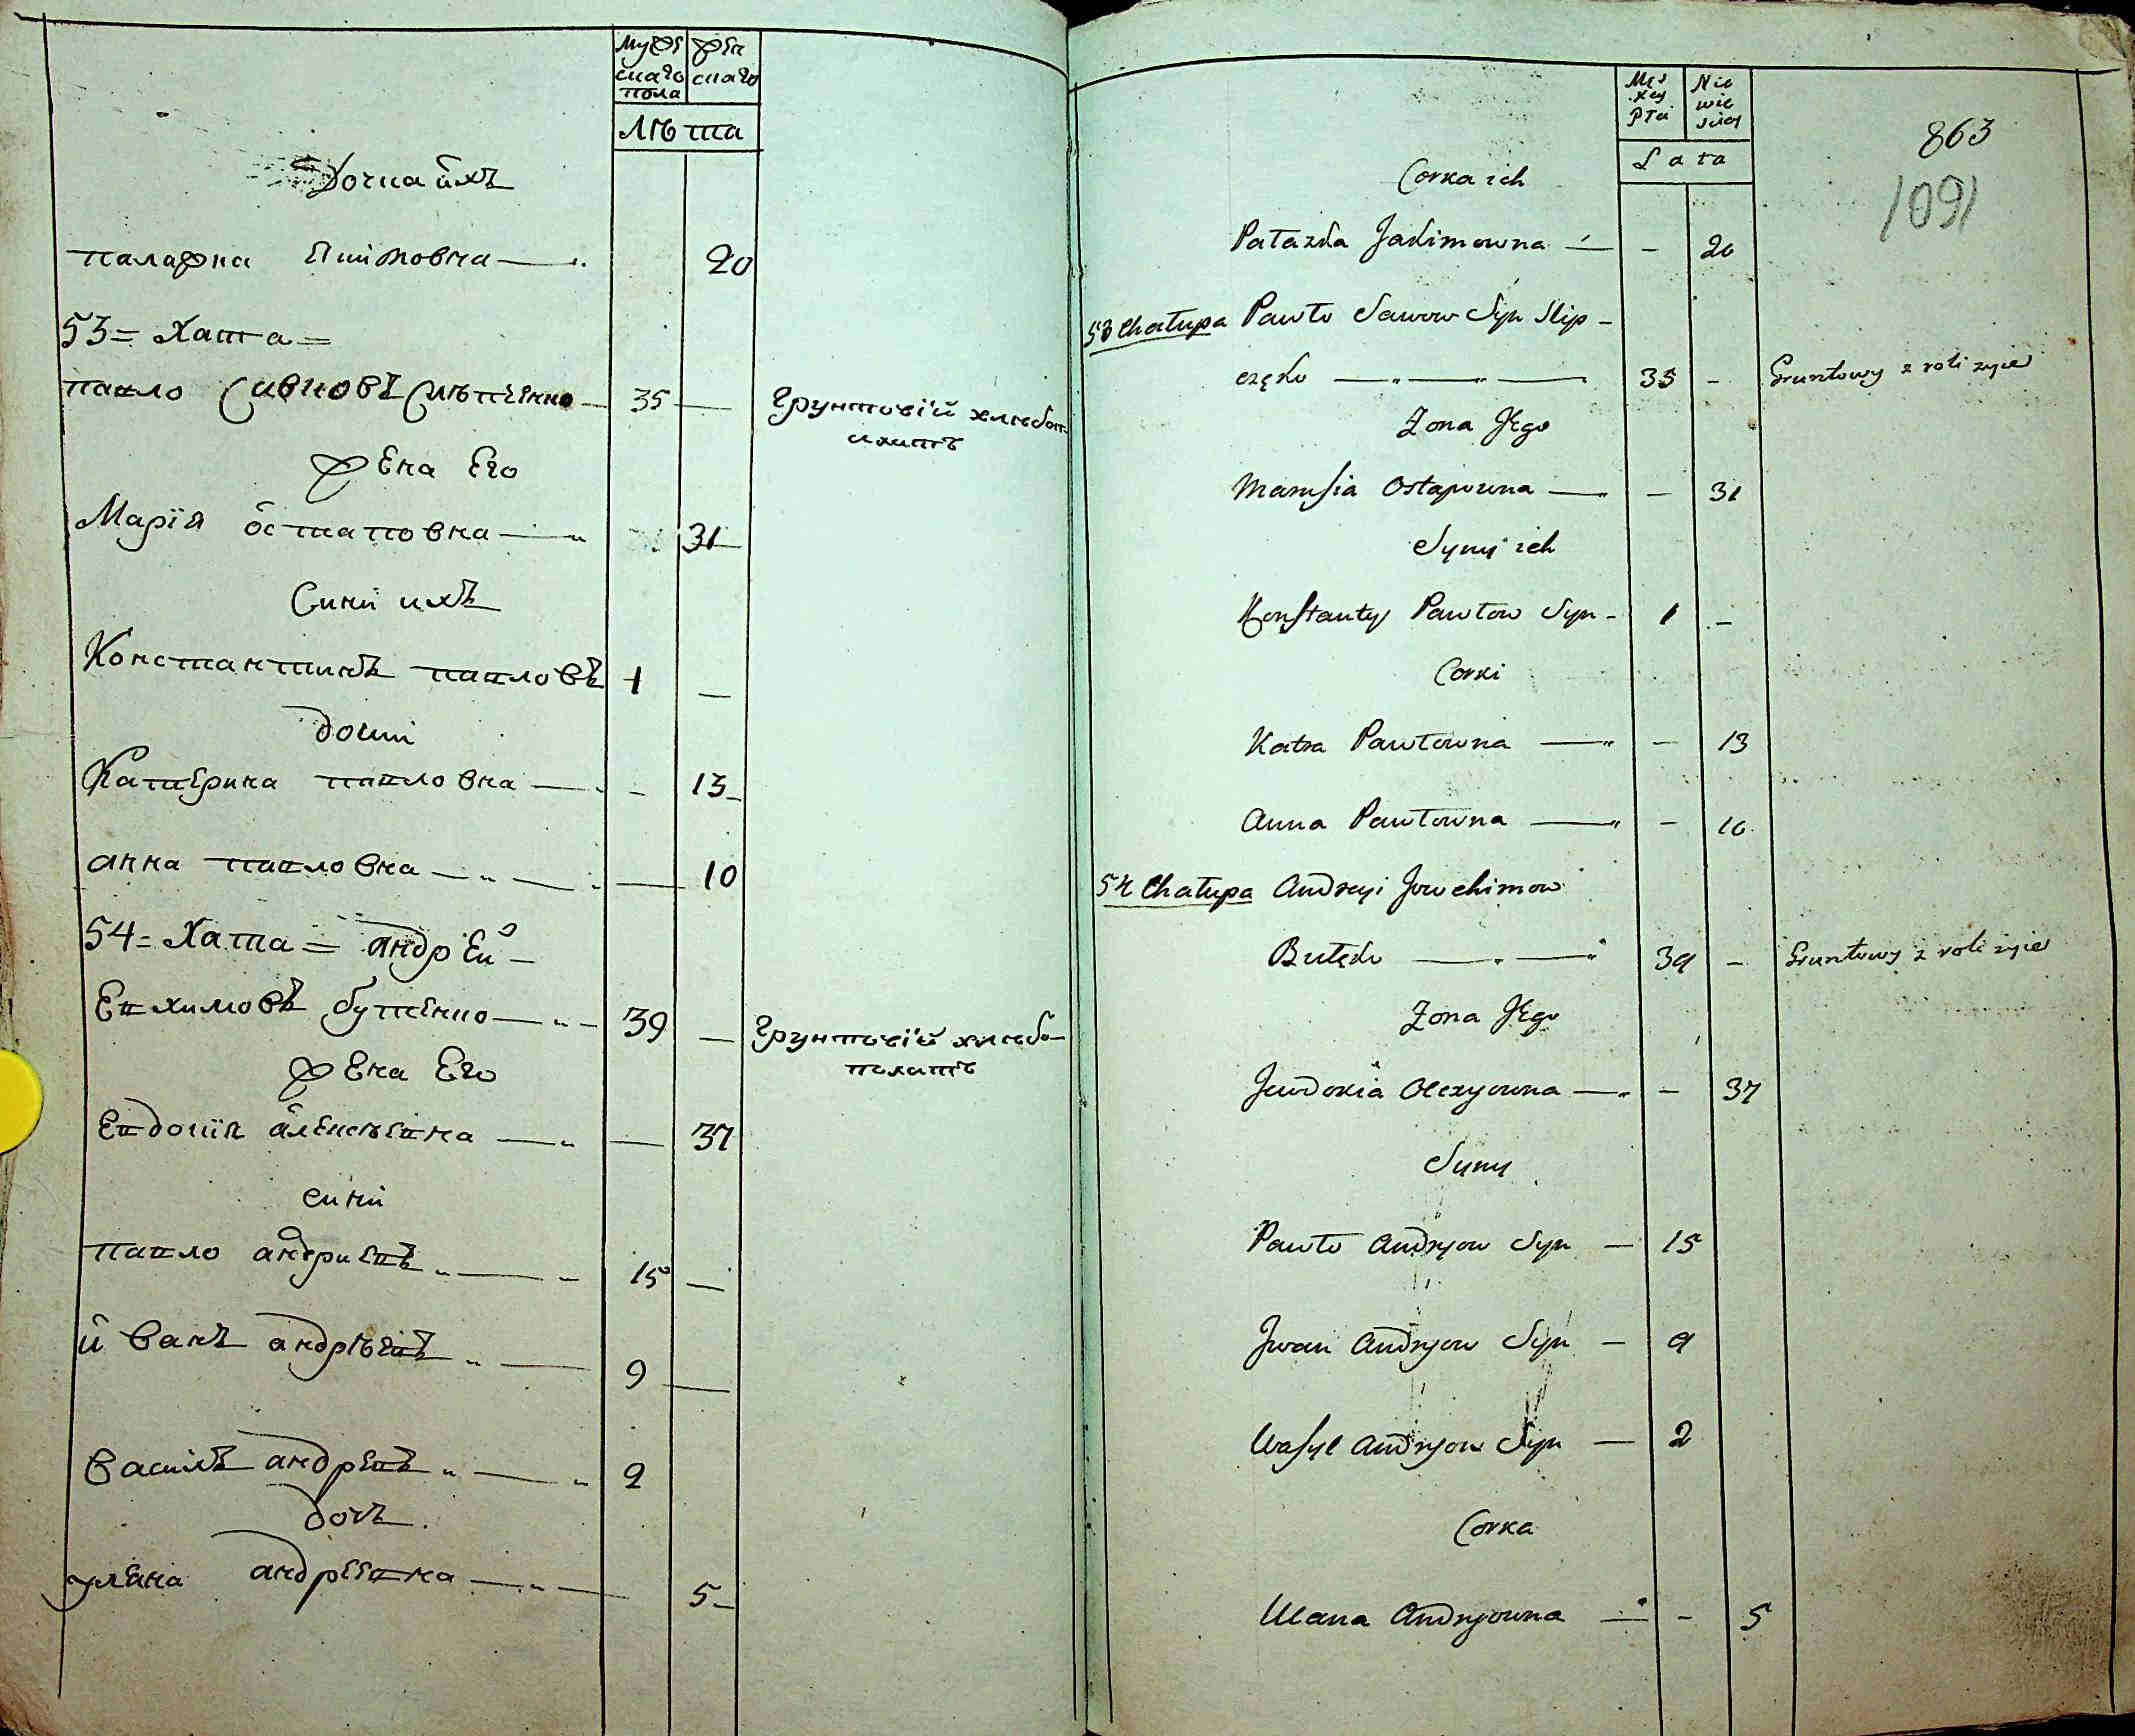 Мужескаго пола
женскаго
Лѣта
Дочка ихъ
палажка Якимовна 20
53 = Хата =
павло Савковъ Слѣпченко 35 — Грунтовій хлѣбопашитъ
жена Его
Марія остаповна 31
Сини ихъ
Константинъ павловъ 1 —
дочки
Катерина павловна - 13
анна павловна — 10
54 = Хата = андрЕй
Евхимовъ бутенко 39 — Грунтовій хлѣбо-
жена Его
Евдокія алексѣевна — 37
сини
павло андриевъ 15 —
иванъ андрѣевъ 9 —
василь андреевъ 2
дочь
уляна андреевна 5
Męzkey Płci
Niewieściey
Lata
863
1091
Corka ich
Pałazka Jakimowna — - 20
53 Chałupa Pawło Sawow Syn Slip-
częko 35 - Gruntowy z roli zyie
Zona Jego
Marusia Ostapowna — - 31
Synij ich
Konstanty Pawłow Syn - 1 -
Corki
Katra Pawłowna — - 13
Anna Pawłowna — - 10
54 Chałupa Andreyi Jowchimow
Butęko 39 - Gruntowy z roli zyie
Zona Jego
Jewdokia Olexyowna — - 37
Syny
Pawło Andryow Syn — 15
Jwan Andryow Syn — 9
Wasyl Andryow Syn — 2
Corka
Ulana Andryowna — - 5